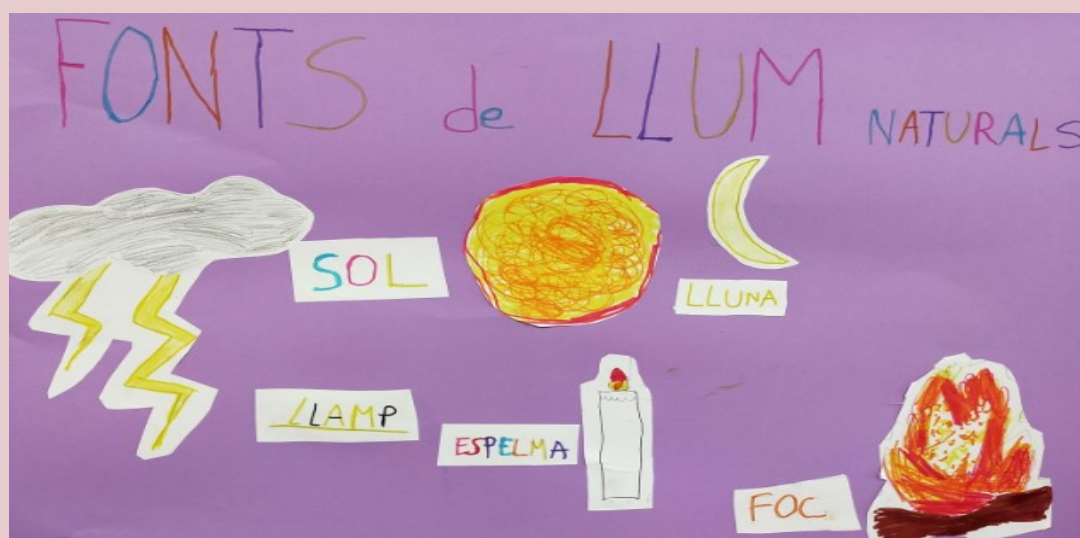 FONTS de LLUM NATURALS
SOL
LLUNA
LLAMP
ESPELMA
FOC